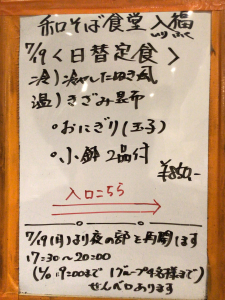 和そば食堂 入福
いり ふく
7/19 <日替定食>
冷)冷やしたぬき風
温)きざみ昆布
・おにぎり(玉子)
・小鉢 2品付
¥850,-
入口こちら
7/19(月)より夜の部を再開します
17:30〜20:00
(L/o 19:00まで 1グループ4名様まで)
せんべろあります